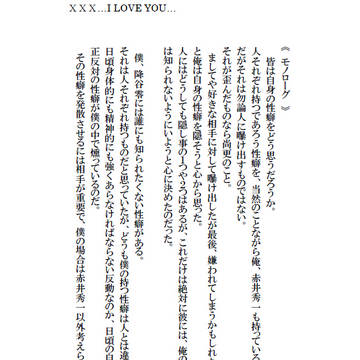 XXX…I LOVE YOU…
《 モノローグ 》
皆は自身の性癖をどう思うだろうか。
人それぞれ持つであろう性癖を、当然のことながら俺、赤井秀一も持っている
だがそれは勿論人に曝け出すものではない。
それが歪んだものなら尚更のこと。
ましてや好きな相手に対して曝け出したが最後、嫌われてしまうかもしれ
と俺は自身の性癖を隠そうと心から思った。
人にはどうしても隠し事の1つや2つはあるが、これだけは絶対に彼には、俺の
は知られないようにいようと心に決めたのだった。
僕、降谷零には誰にも知られたくない性癖がある。
それは人それぞれ持つものだと思っていたが、どうも僕の持つ性癖は人とは違
日頃身体的にも精神的にも強くあらなければならない反動なのか、日頃の自
正反対の性癖が僕の中で燻っているのだ。
その性癖を発散させるには相手が重要で、僕の場合は赤井秀一以外考えら